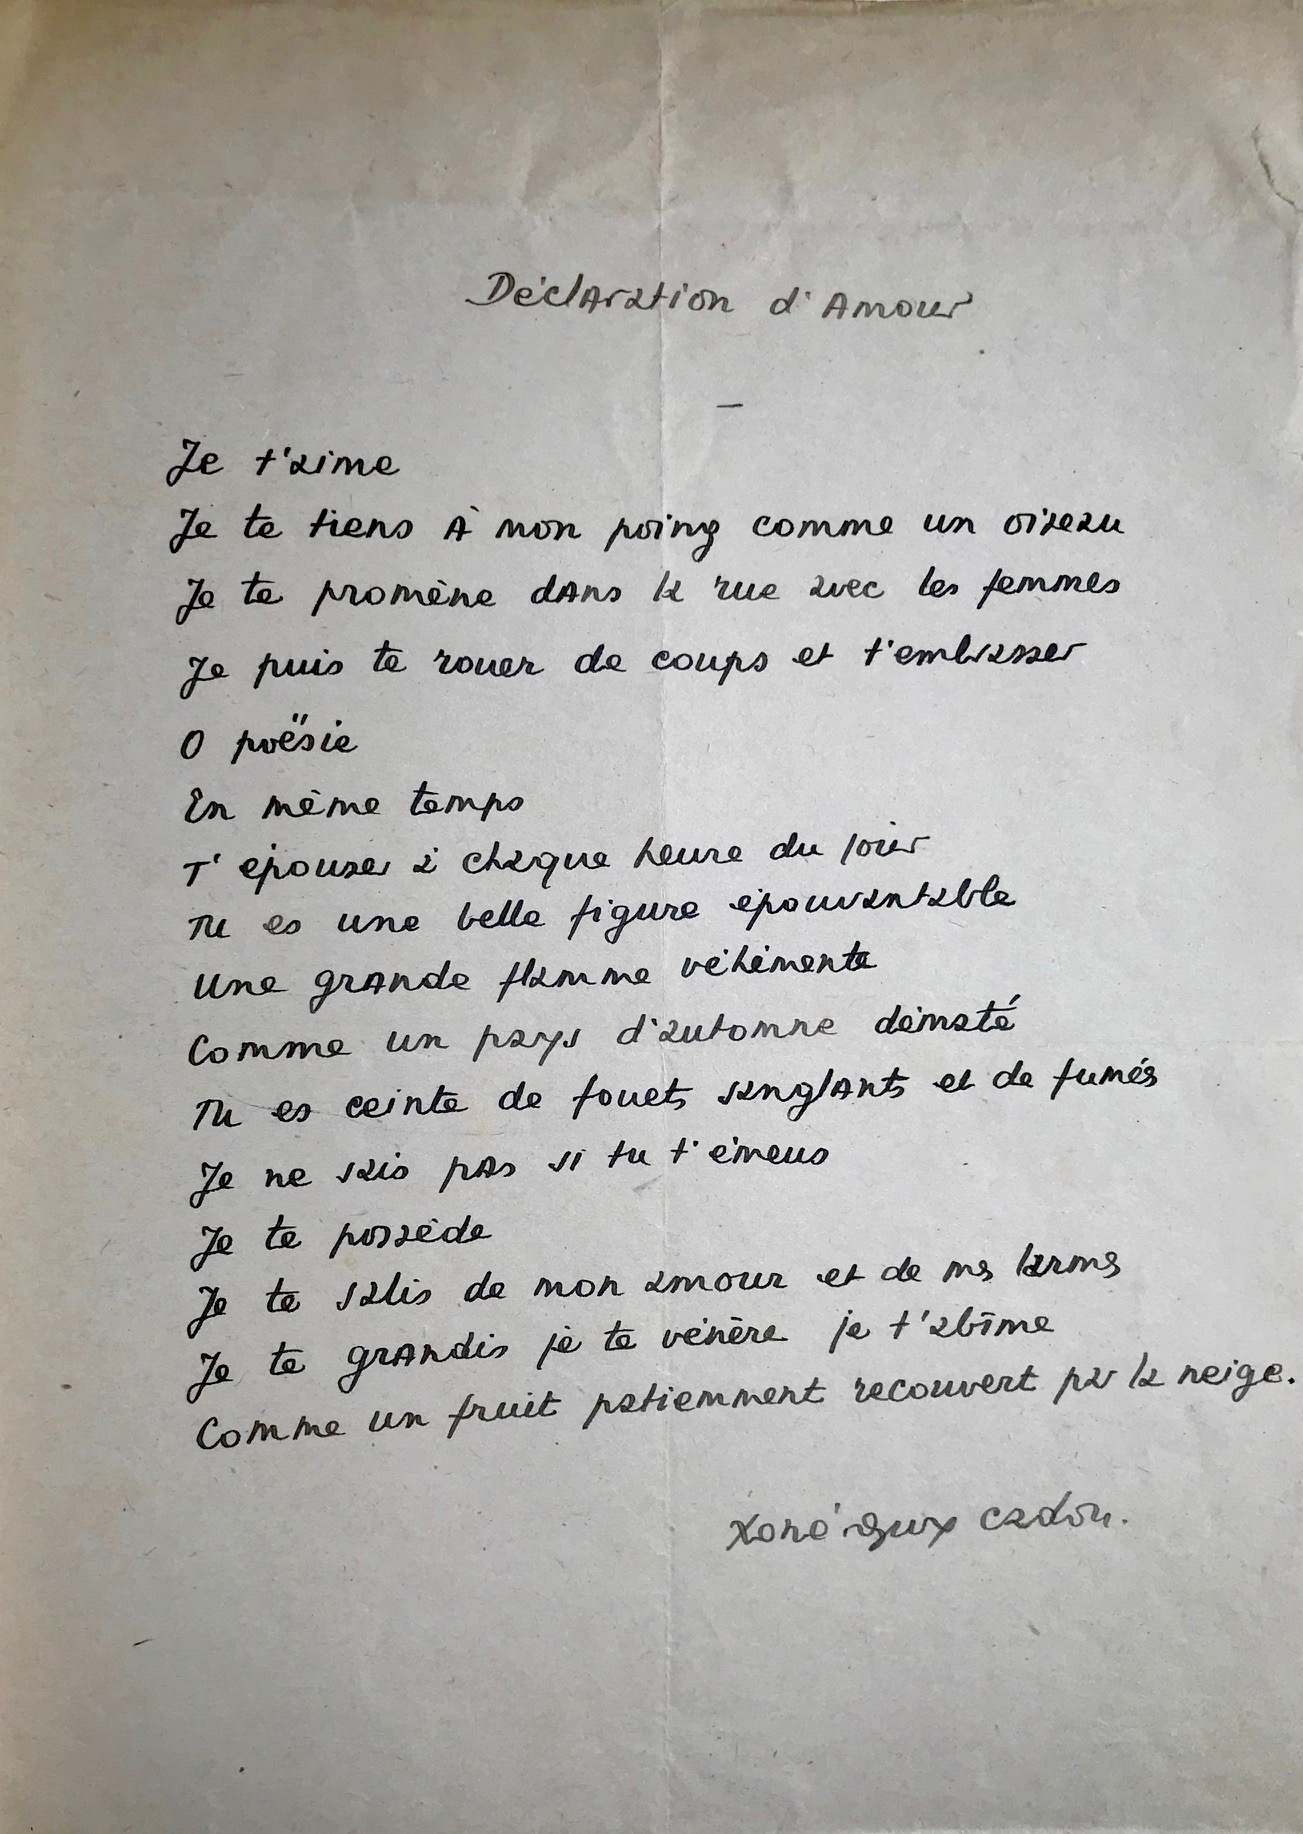 Déclaration d'Amour
—
Je t'aime
Je te tiens à mon poing comme un oiseau
Je te promène dans la rue avec les femmes
Je puis te rouer de coups et t'embrasser
O poësie
En même temps
T'épouser à chaque heure du jour
Tu es une belle figure épouvantable
Une grande flamme véhémente
Comme un pays d'automne démâté
Tu es ceinte de fouets sanglants et de fumées
Je ne sais pas si tu t'émeus
Je te possède
Je te salis de mon amour et de mes larmes
Je te grandis je te vénère je t'abîme
Comme un fruit patiemment recouvert par la neige.
René Guy Cadou.